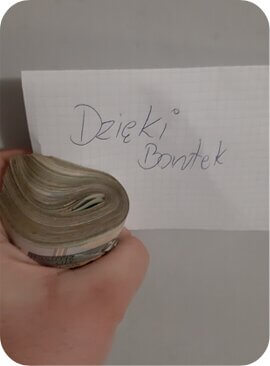 Dzięki
Bartek